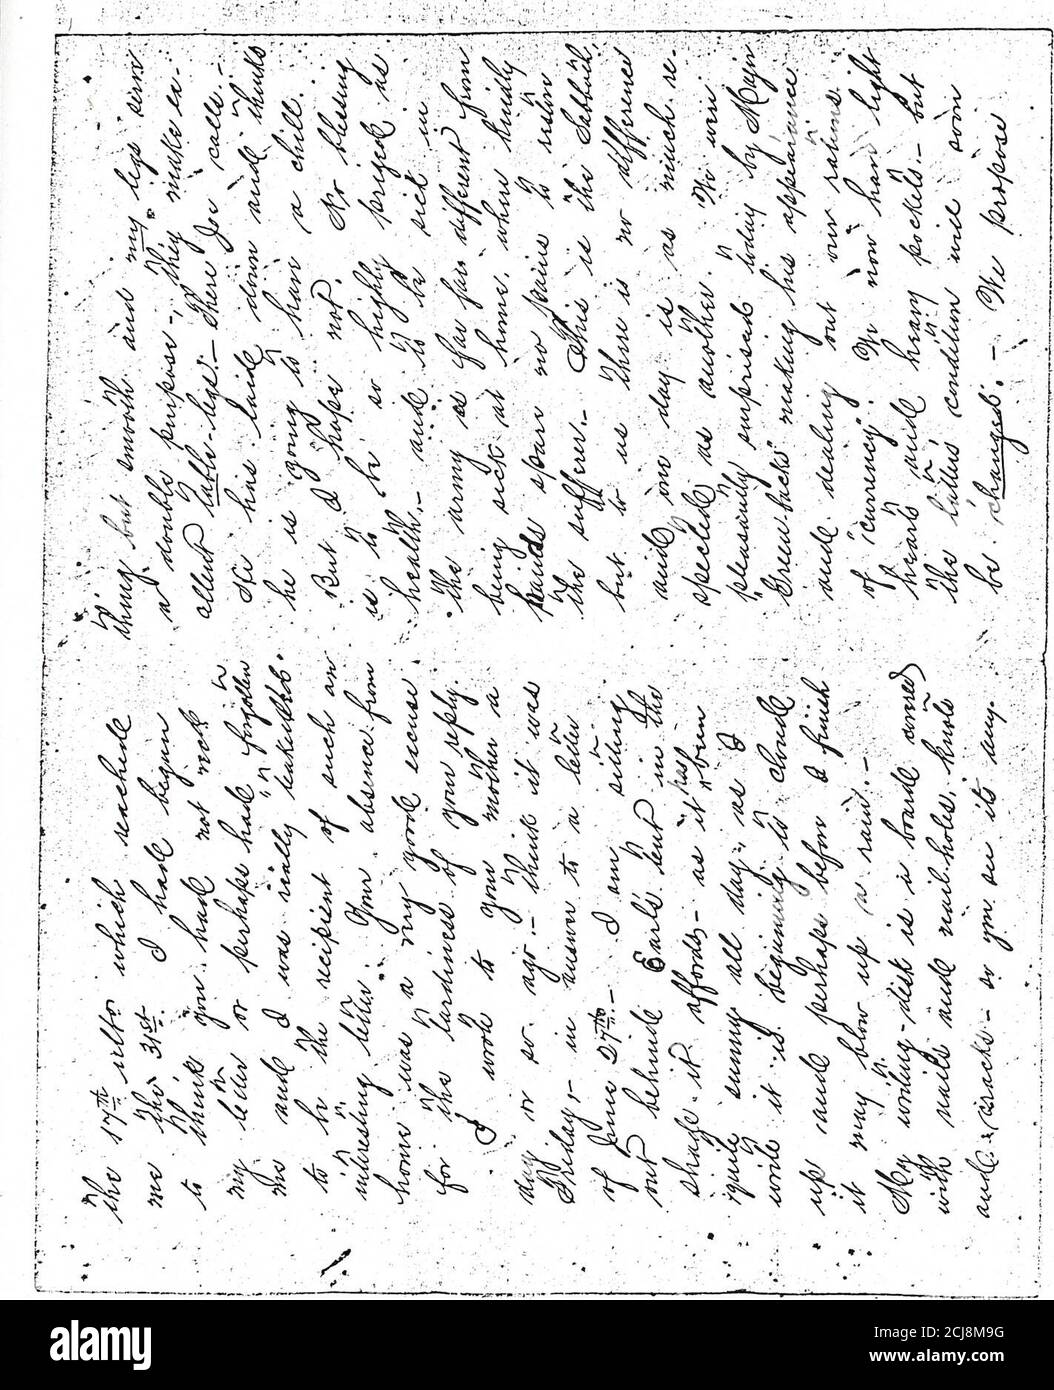 the 17th ulto which reached
me the 31st. I had begun
to think you had not rec'd
my letter or perhaps had forgotten
me and I was really
to be the recipient of such an
interesting letter. Your absence from
home was a very good excuse
for the tardiness of your reply.
I wrote to your mother a
day or so ago – think it was
Friday – in answer to a letter
of June 27th – I am sitting
out behind Earl's tent in the
shade it affords – as it has been
quite sunny all day, as I
write it is beginning to cloud
up and perhaps before I finish
it may blow up a rain. –
My writing-disk is a board
with nails and nail-holes, knots
and cracks – so you see it is
thing but smooth and my legs serve
a double purpose – they make ex-
cellent table-legs. – There Joe calls. –
He has laid down and thinks
he is going to have a chill.
But I hope not. No blessing
is to be so highly prized as
health. – and to be sick in
the army is far far different from
being sick at home, when kindly
hands spare no pains to
the sufferer. – This is the Sabbath
but to us there is no difference
and one day is as much re-
spected as another. We were
pleasantly surprised today by Major
"Green-backs" making his appearance
and dealing out our rations
of "currency". We now have light
hearts and heavy pockets. – but
the latter's condition will soon
be changed. – We propose
alamy
Image ID: 2CJ8M9G
www.alamy.com